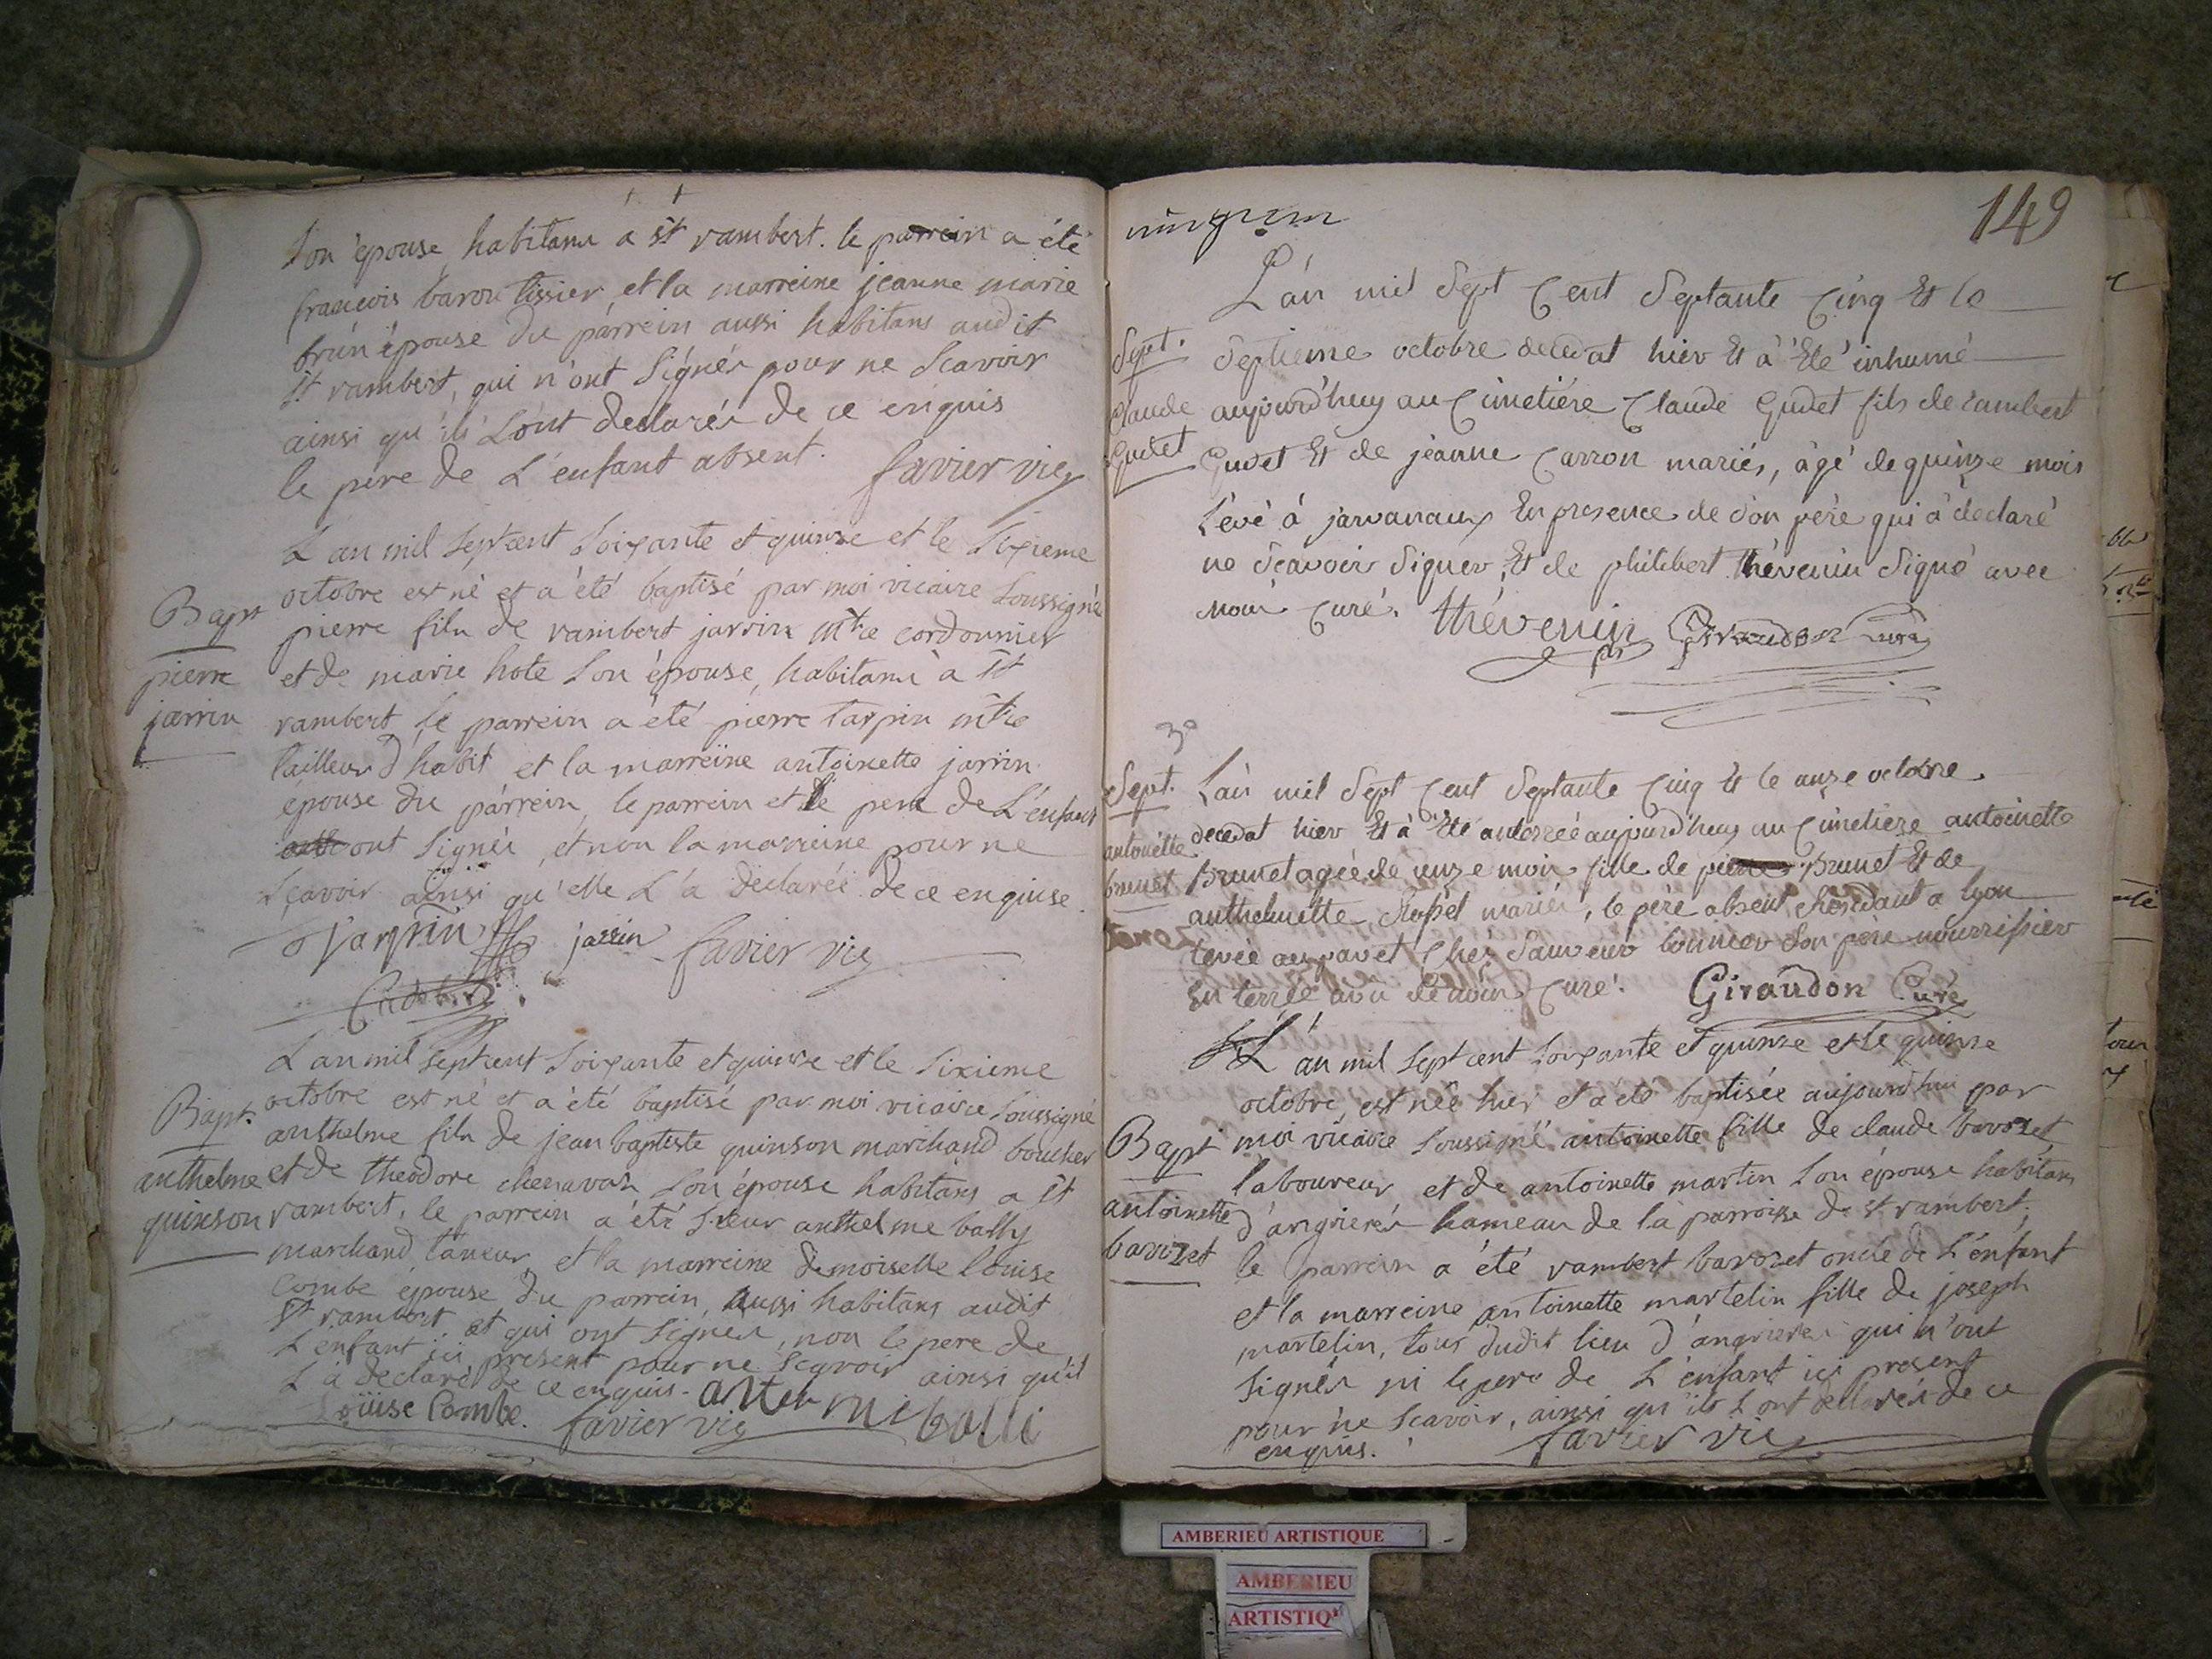 son épouse, habitans a st rambert. le parrein a été
francois baron tissier, et la marreine jeanne marie
brun épouse du parrein aussi habitans audit
st rambert, qui n'ont signés pour ne scavoir
ainsi qu'ils l'ont declarés de ce enquis
le pere de l'enfant absent. favier vic
L'an mil sept cent soixante et quinze et le sixieme
octobre est né et a été baptisé par moi vicaire soussigné
pierre fils de rambert jarrin mtre cordonnier
et de marie hote son épouse, habitans à st
rambert, le parrein a été pierre tarpin mtre
tailleur d'habit et la marreine antoinette jarrin
épouse du parrein, le parrein et le pere de l'enfant
ont signés, et non la marreine pour ne
sçavoir ainsi qu'elle l'a declarée de ce enquise.
Bapt
pierre
jarrin
tarpin jarrin favier vic
L'an mil sept cent soixante et quinze et le sixieme
octobre est né et a été baptisé par moi vicaire soussigné
anthelme fils de jean baptiste quinson marchand boucher
et de theodore chenavas son épouse habitans a st
rambert, le parrein a été sieur anthelme bally
marchand taneur, et la marreine demoiselle louise
combe épouse du parrein, aussi habitans audit
st rambert et qui ont signés, non le pere de
l'enfant ici present pour ne scavoir ainsi qu'il
l'a declaré de ce enquis.
Bapt.
anthelme
quinson
Loüise Combe. favier vic
149
L'an mil sept cent septante cinq et le
septieme octobre decedat hier et à été inhumé
aujourd'huy au cimetiére claude gudet fils de rambert
gudet et de jeanne carron mariés, âgé de quinze mois
levé à javanaux en presence de son père qui à déclaré
ne sçavoir signer, et de philibert thévenin signé avec
nous curé. thévenin Giraudon curé
Sept.
claude
gudet
3e
L'an mil sept cent septante cinq et le onze octobre
decedat hier et à été enterrée aujourd'huy au cimetiére antoinette
Brunet agée de onze mois fille de Brunet et de
anthelmette mariés, le père absent residant a lyon
levée au pavet chez sauveur bonnier son père nourrissier
enterrée curé. Giraudon Curé
Sept.
antoinette
brunet
L'an mil sept cent soixante et quinze et le quinze
octobre, est née hier et a été baptisée aujourd'hui par
moi vicaire soussigné antoinette fille de claude bavozet
laboureur et de antoinette martin son épouse habitans
d'angrieres hameau de la parroisse de st rambert.
le parrein a été rambert bavozet oncle de l'enfant
et la marreine antoinette martelin fille de joseph
martelin, tous dudit lieu d'angrieres qui n'ont
signés ni le pere de l'enfant ici present
pour ne scavoir, ainsi qu'ils l'ont declarés de ce
enquis. favier vic
Bapt
antoinette
bavozet
AMBERIEU ARTISTIQUE
AMBERIEU
ARTISTIQ